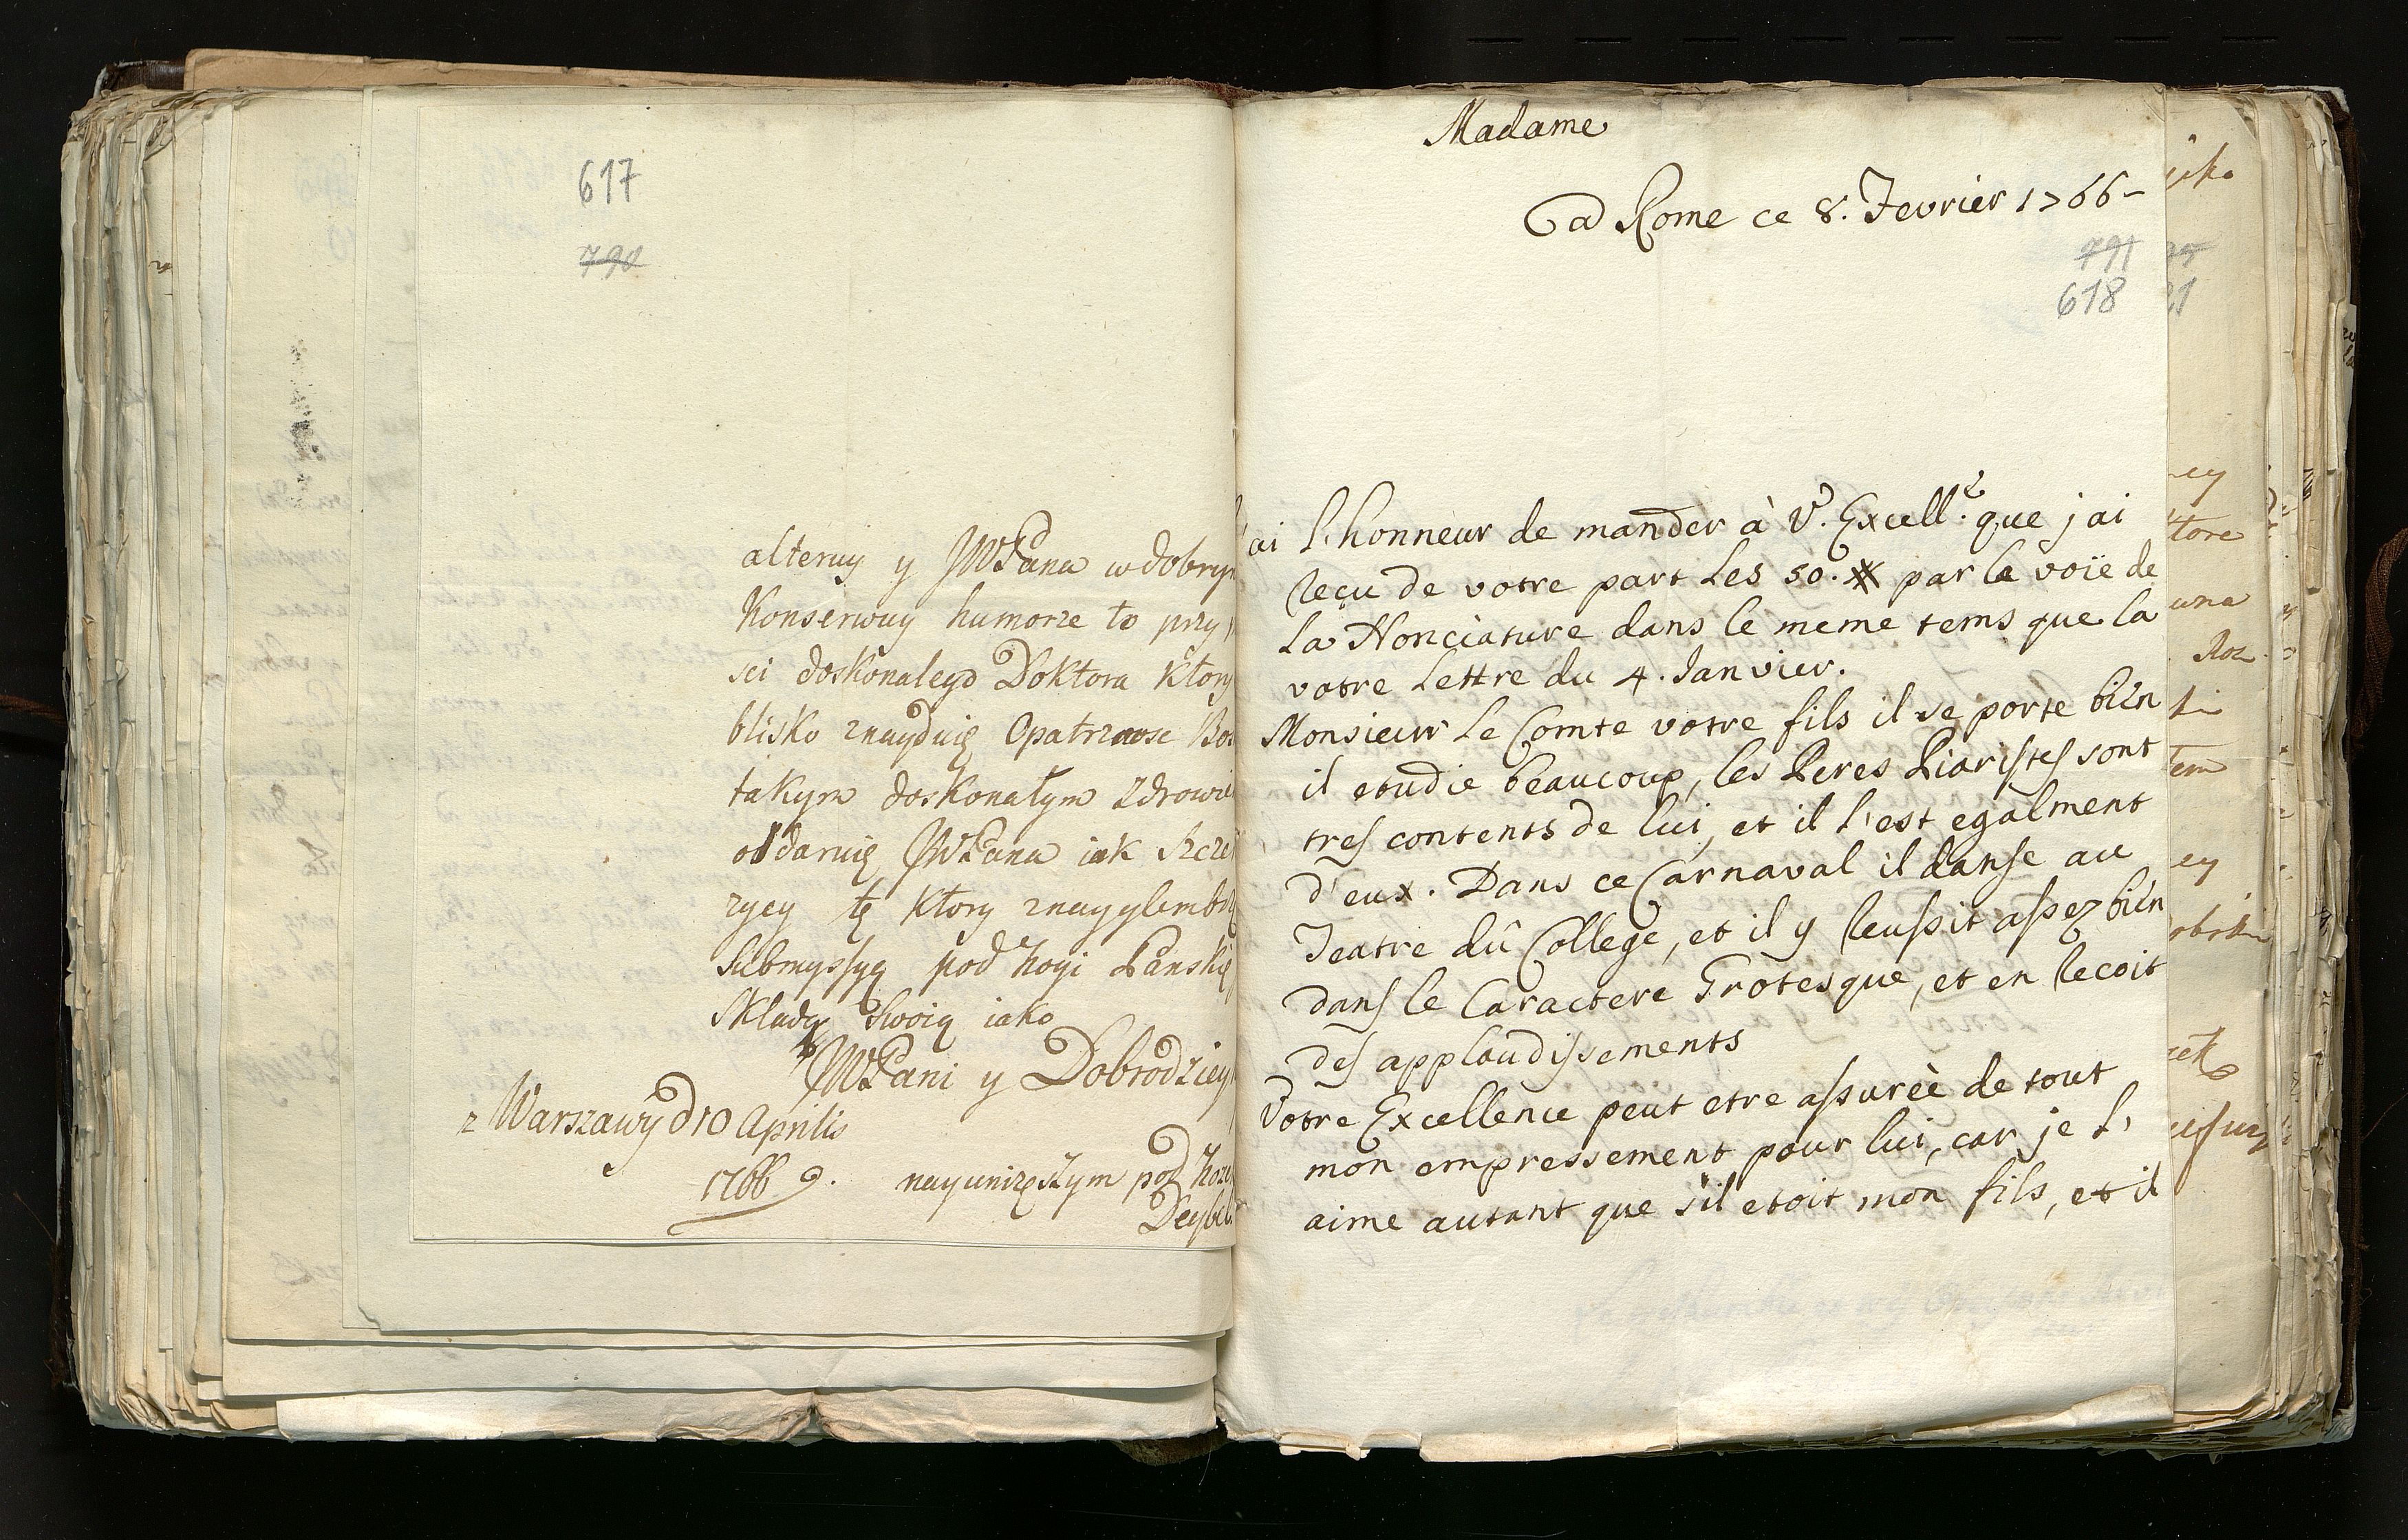 617
790
alteruy y JWPana w dobrym
Konserwuy humorze to przy
sci doskonalego Doktora Ktory
blisko znayduię Opatrznosc Bos
takym doskonałym zdrowie
obdaruię JWPana iak Szcze
rycy tę Ktory znayglembszą
Submyssyą pod nogi Panskię
Składą Swoią iako
JWPani y Dobrodziey
z Warszawy d 10 Aprilis
1766
nayunizęszym pod
Deybel
Madame
a Rome ce 8. Fevrier 1766
791
618
ai l'honneur de mander à V. Excell.e que j'ai
reçu de votre part les 50. # par la voïe de
la Nonciature dans le meme tems que la
votre Lettre du 4. Janvier.
Monsieur le Comte votre fils il se porte bién
il etudie beaucoup, les Peres Piaristes sont
tres contents de lui, et il l'est egalment
d'eux. Dans ce Carnaval il danse au
Teatre dû College, et il y reussit assez bién
dans le Caractere Grotesque, et en recoit
des applaudissements
Votre Excellence peut etre assureè de tout
mon empressement pour lui, car je l'
aime autant que s'il etoit mon fils, et il